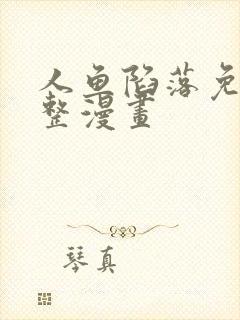 人鱼陷落免
整漫畫
琴真